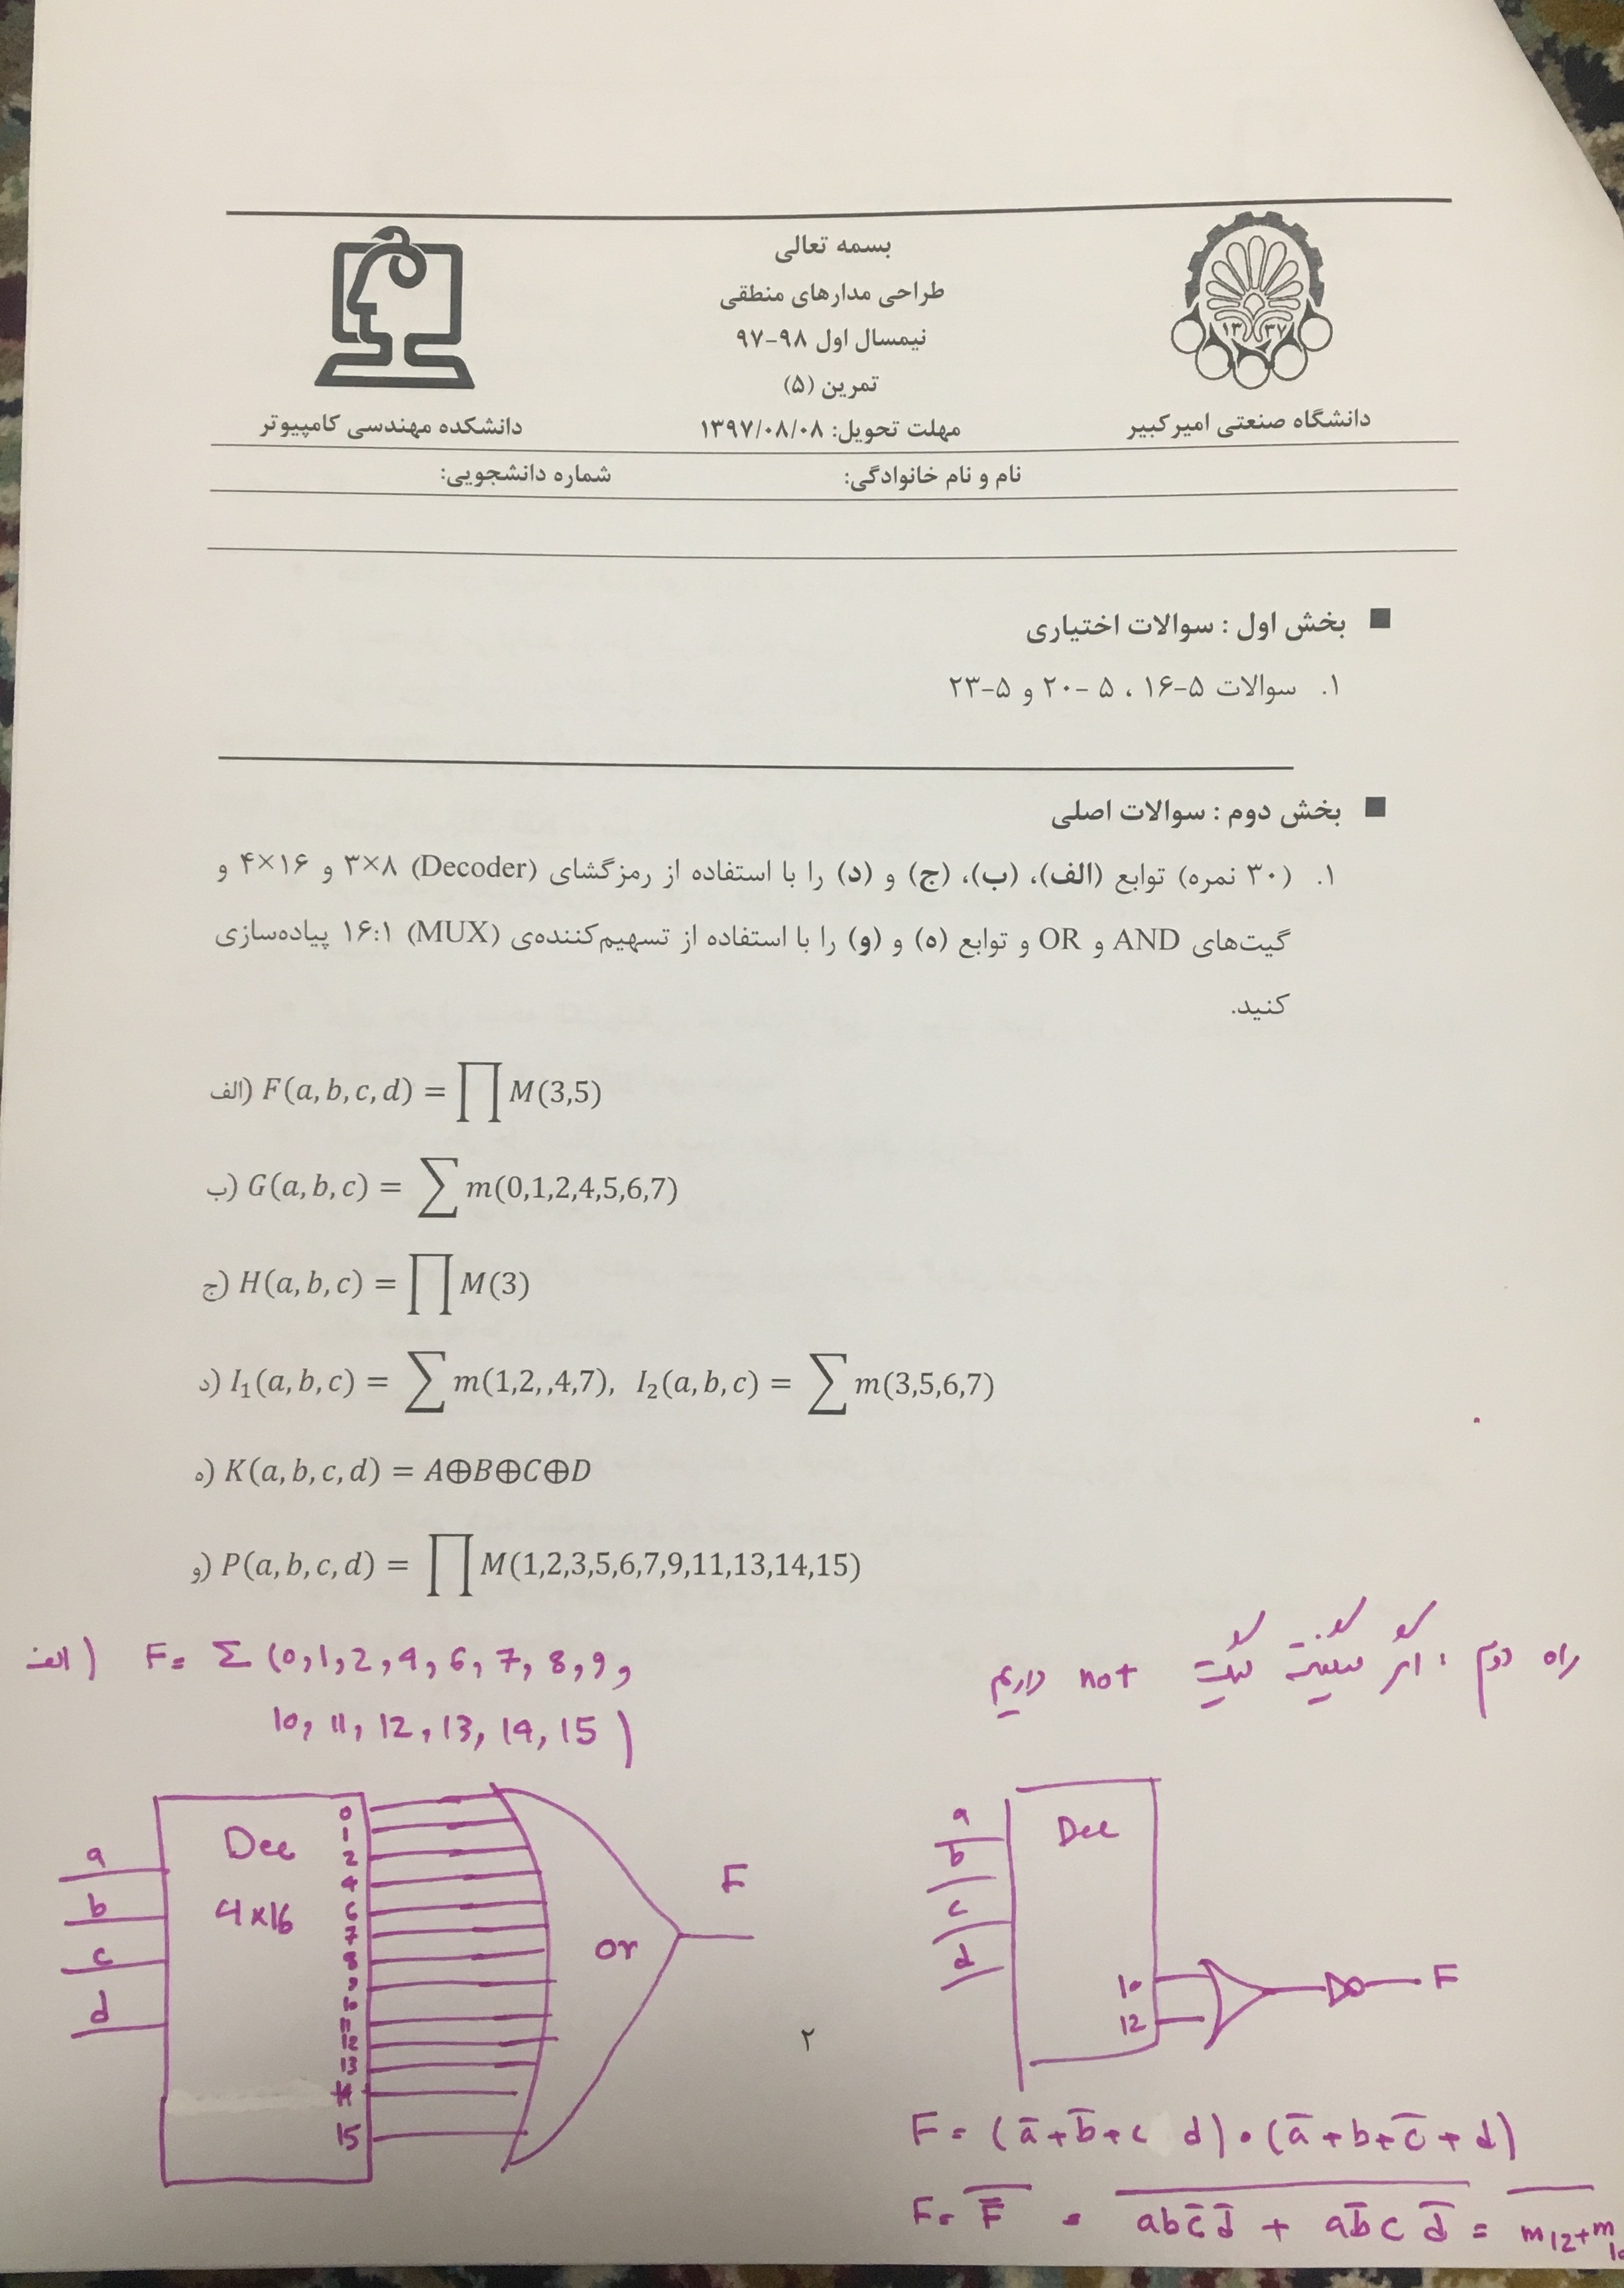 بسمه تعالی
طراحی مدارهای منطقی
نیمسال اول ۹۸-۹۷
تمرین (۵)
مهلت تحویل: ۱۳۹۷/۰۸/۰۸
دانشگاه صنعتی امیرکبیر
۱۳ ۳۷
دانشکده مهندسی کامپیوتر
نام و نام خانوادگی: شماره دانشجویی:
■ بخش اول : سوالات اختیاری
۱. سوالات ۵-۱۶ ، ۵ -۲۰ و ۵-۲۳
■ بخش دوم : سوالات اصلی
۱. (۳۰ نمره) توابع (الف)، (ب)، (ج) و (د) را با استفاده از رمزگشای (Decoder) ۳×۸ و ۴×۱۶ و
گیت‌های AND و OR و توابع (ه) و (و) را با استفاده از تسهیم‌کننده‌ی (MUX) ۱۶:۱ پیاده‌سازی
کنید.
الف) F(a, b, c, d) = ∏ M(3,5)
ب) G(a, b, c) = ∑ m(0,1,2,4,5,6,7)
ج) H(a, b, c) = ∏ M(3)
د) I₁(a, b, c) = ∑ m(1,2,,4,7), I₂(a, b, c) = ∑ m(3,5,6,7)
ه) K(a, b, c, d) = A⊕B⊕C⊕D
و) P(a, b, c, d) = ∏ M(1,2,3,5,6,7,9,11,13,14,15)
الف) F = Σ (0,1,2,4,6,7,8,9,
10, 11, 12, 13, 14, 15)
راه دوم : اگر گیت not داریم
a
b
c
d
Dec
4×16
0
1
2
4
6
7
8
9
11
12
13
15
or
F
a
b
c
d
Dec
10
12
F
۲
F = (ā+b̄+c d)•(ā+b+c̄+d)
F = F̿ = \overline{abc̄d̄ + ab̄cd̄} = \overline{m12+m10}